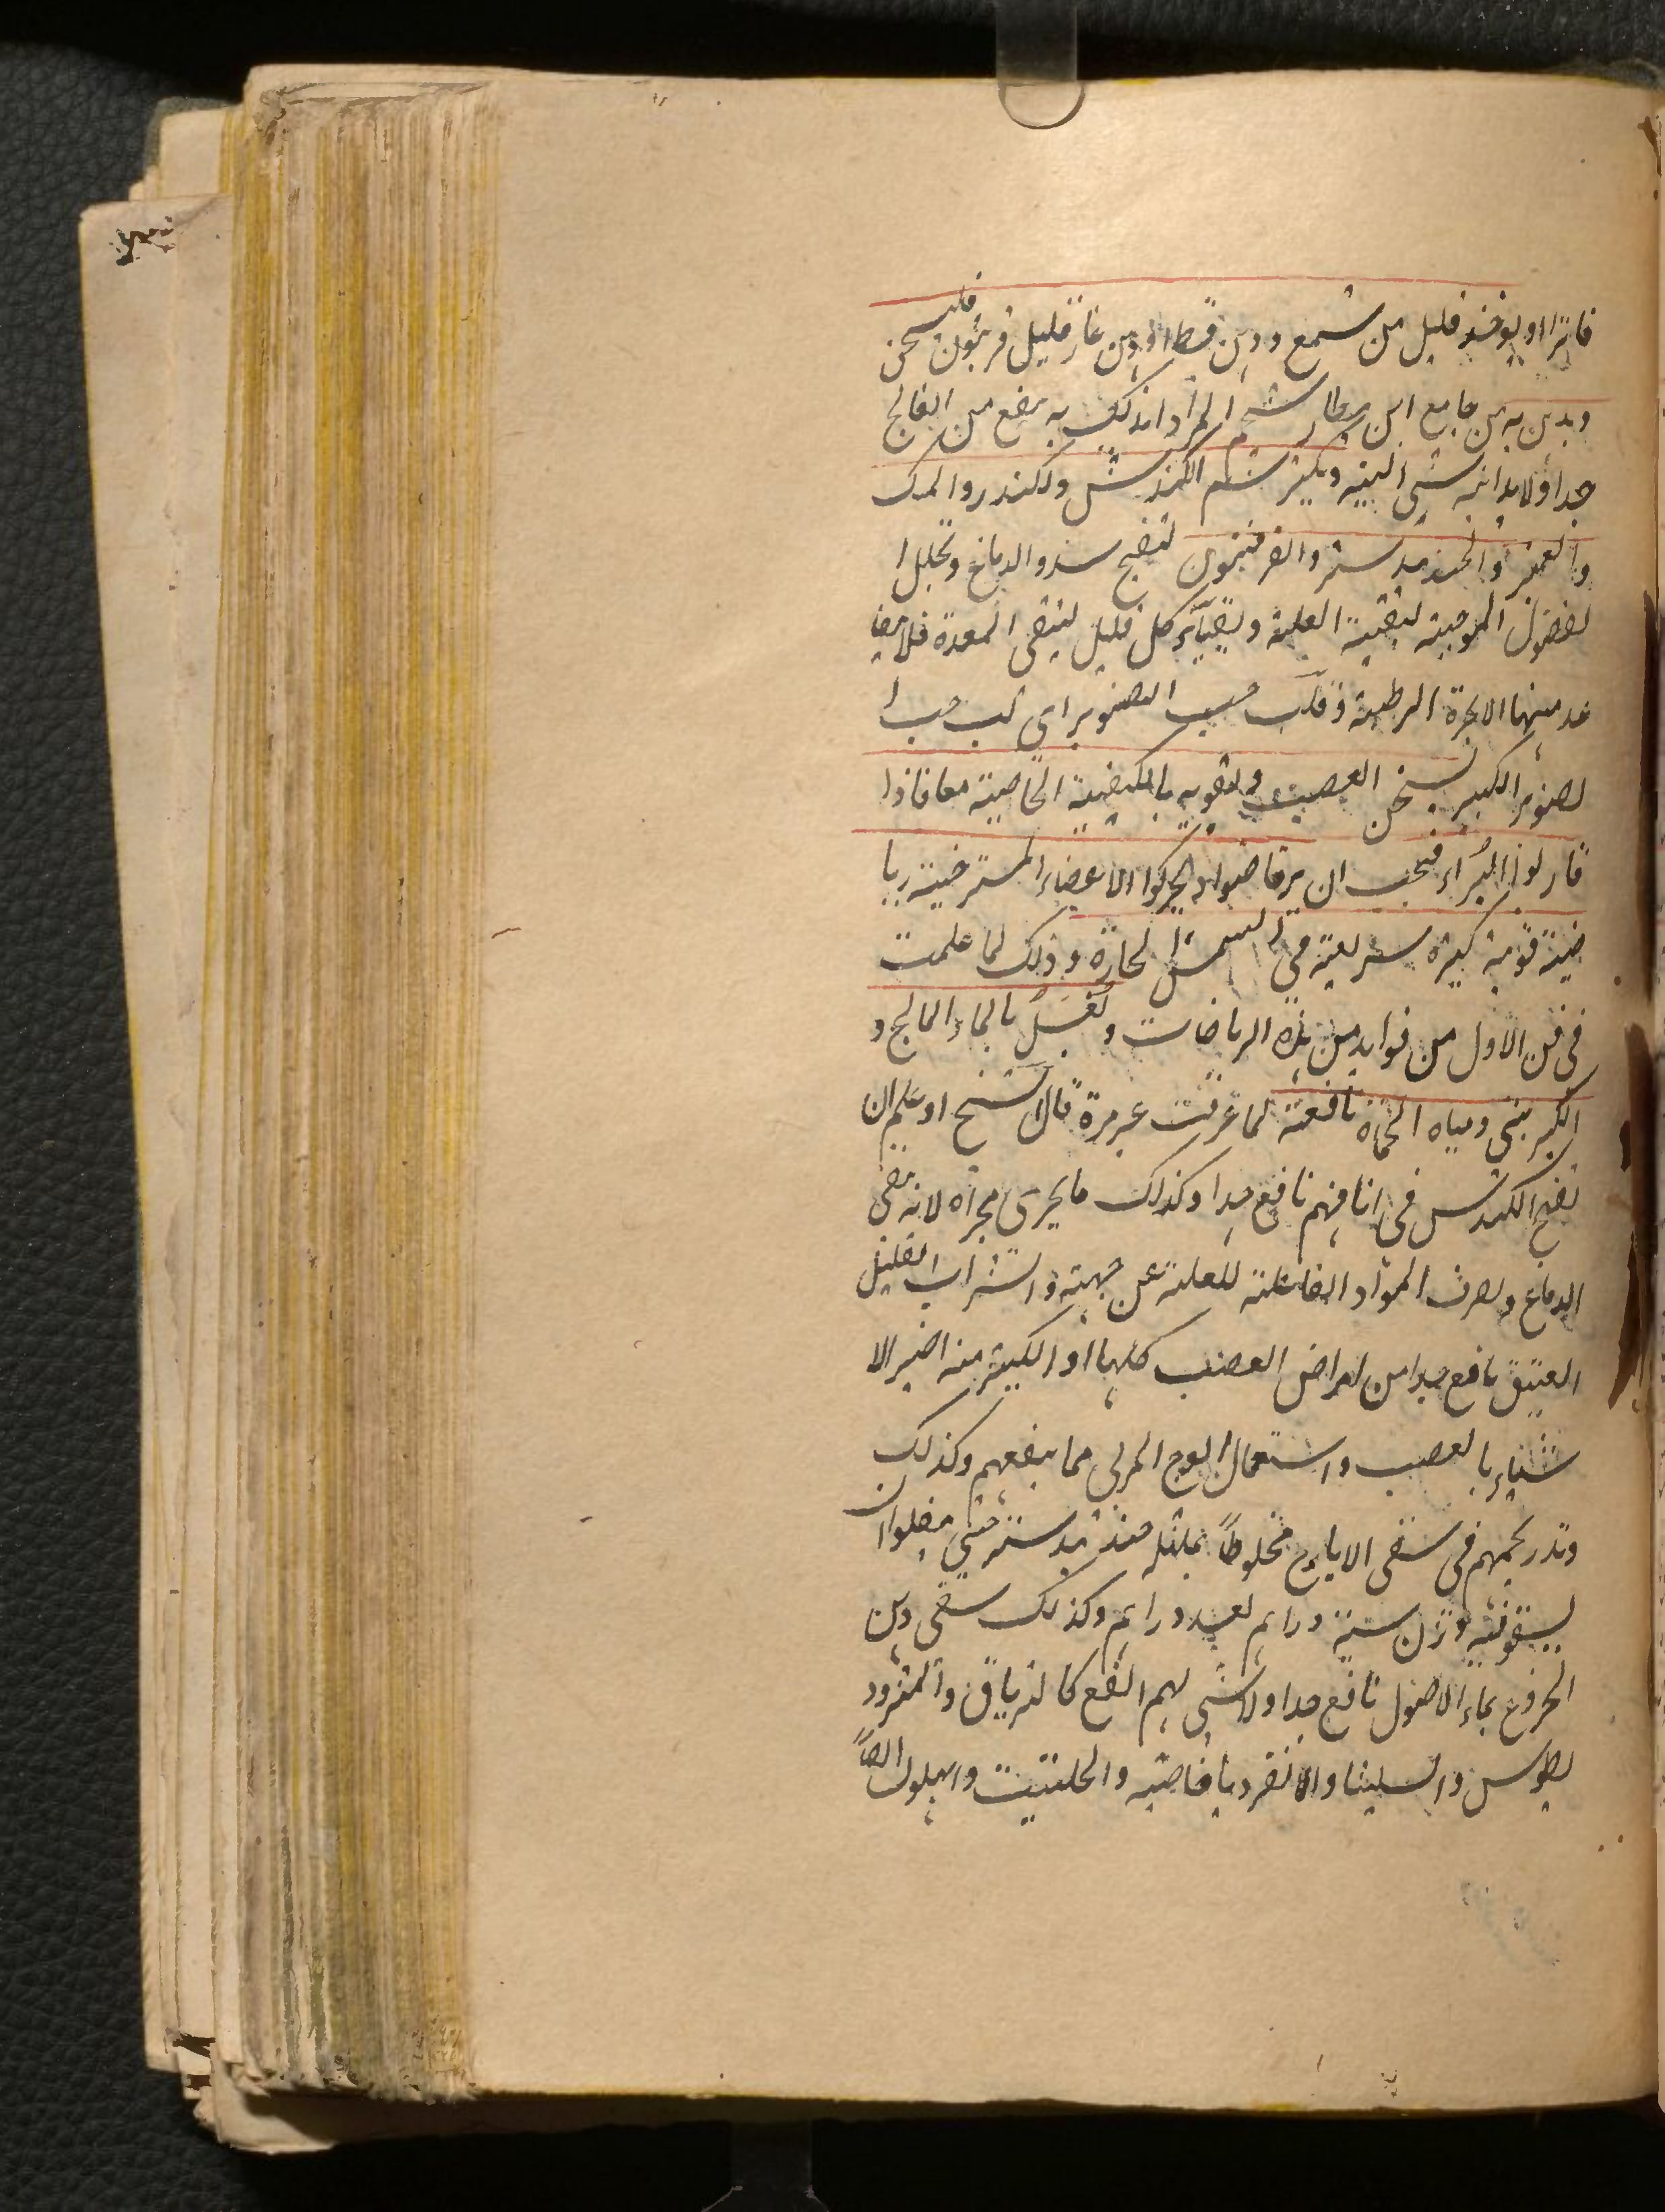 فاترا او يوخذ قليل من شمع ودهن قسط او دهن غار قليل فربيون فليسخن
ويدهن به من جامع ابن بيطار شحم المر اذا تدلك به ينفع من الفالج
جدا ولا يدانيه شي البتة ويكثر شم الكندش والكندر والمسك
والعنبر والجندبيدستر والفرفيون لتفتح سدد الدماغ وتحلل ا
لفضول الموجبة لتقية العلة ويقيأ كل قليل لينقى المعدة فلا يتصا
عد منها الابخرة الرطبة وقلب حب الصنوبر اى لب حب ا
لصنوبر الكبير يسخن العصب ويقويه بالكيفية الخاصية معا فاذا
قاربوا البُراء فيجب ان يرتاضوا ويحركوا الاعضاء المسترخية ريا
ضية قوية كثيرة سريعة فى الشمس الحارة وذلك لما علمت
فى فن الاول من فوايد من هذه الرياضات والغسل بالماء المالح و
الكبريتى ومياه الحمأة نافعة لما عرفت غير مرة قال الشيخ اوعلم ان
نفخ الكندس فى انافهم نافع جدا وكذلك ما يجرى مجراه لانه ينقى
الدماع ويصرف المواد الفاعلة للعلة عن جهته والشراب القليل
العتيق نافع جدا من امراض العصب كلها او الكثير منه اضر الا
شياء بالعصب واستعمال الوج المربى مما ينفعهم وكذلك
وتدريجهم فى سقى الايارج مخلوطاً بمثله جندبيدستر حتى ... ان
يسقونه وزن ستة دراهم بعد دراهم وكذلك سقى دهن
الخروع بماء الاصول نافع جدا ولا شى لهم انفع كالترياق والمثرود
يطوس والشليثا والانقرديا خاصة والحلتيت ... ايضاً